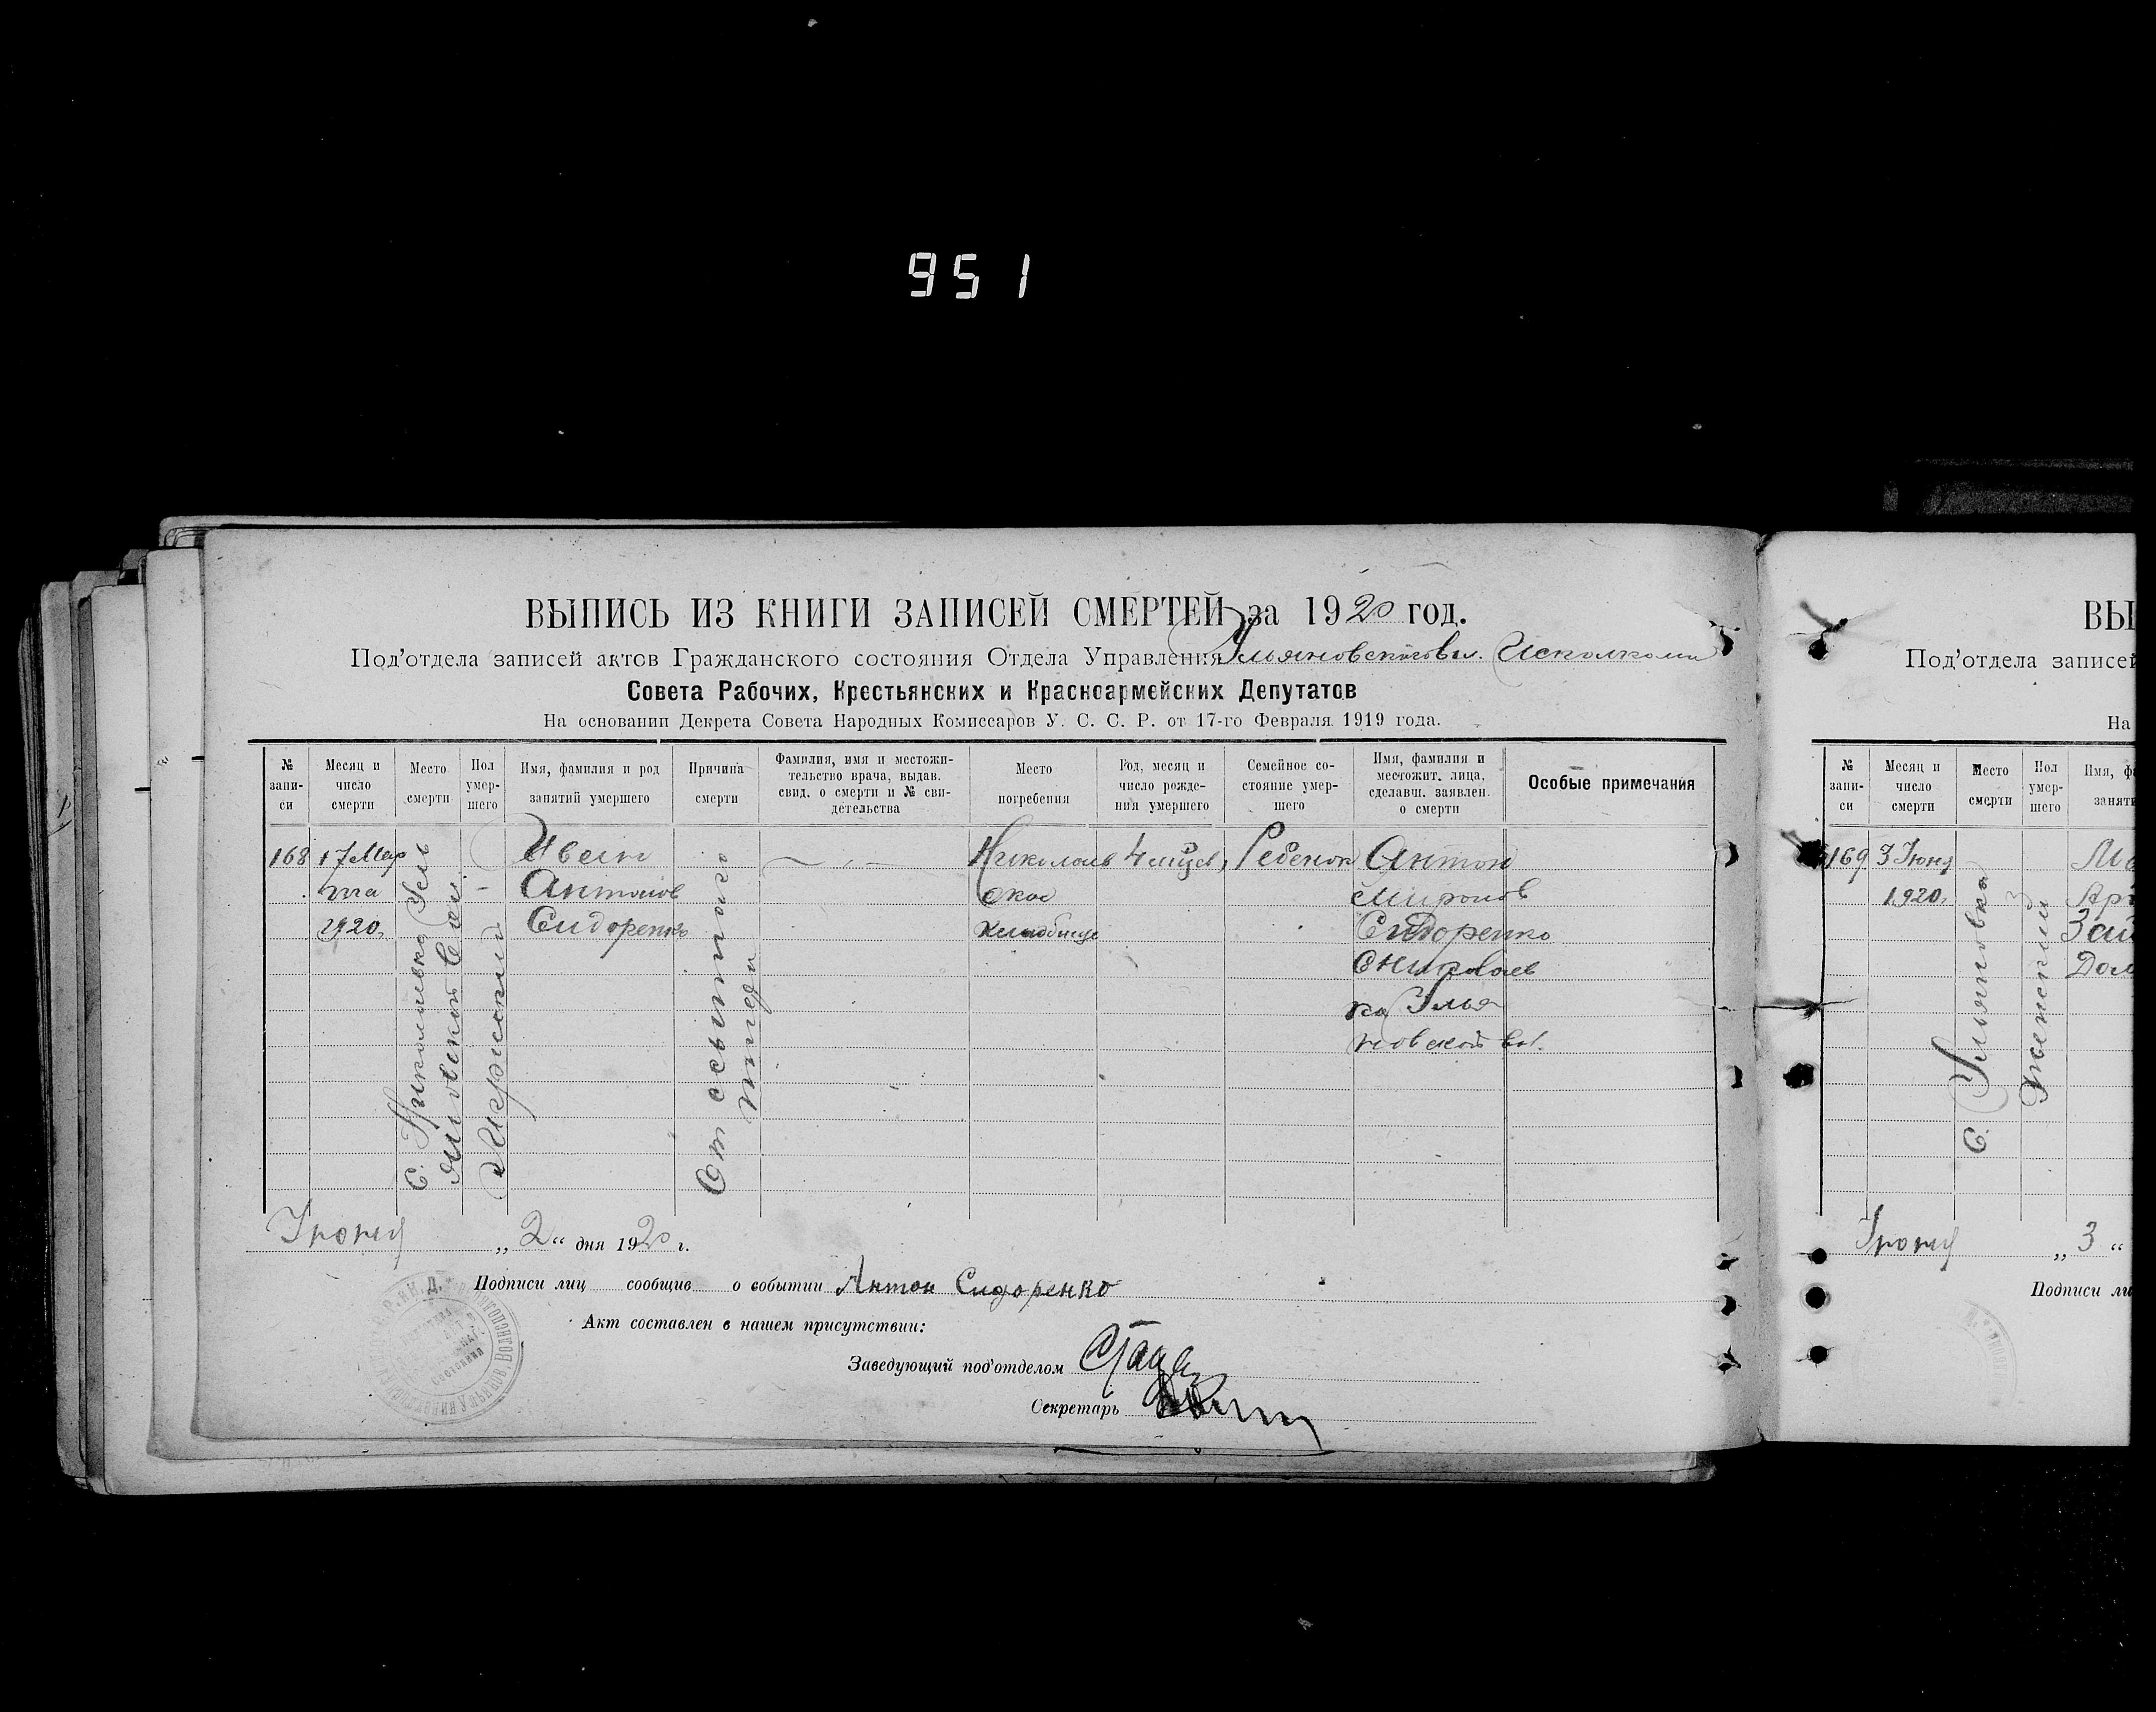 951
ВЫПИСЬ ИЗ КНИГИ ЗАПИСЕЙ СМЕРТЕЙ за 1920 год.
Под'отдела записей актов Гражданского состояния Отдела Управления Ульяновского Вл. Исполкома
Совета Рабочих, Крестьянских и Красноармейских Депутатов
На основании Декрета Совета Народных Комиссаров У. С. С. Р. от 17-го Февраля 1919 года.
№ запи-си
Месяц и число смерти
Место смерти
Пол умер-шего
Имя, фамилия и род занятий умершего
Причина смерти
Фамилия, имя и местожи-тельство врача, выдав. свид. о смерти и № сви-детельства
Место погребения
Год, месяц и число рожде-ния умершего
Семейное со-стояние умер-шего
Имя, фамилия и местожит. лица, сделавш. заявлен. о смерти
Особые примечания
168
17 Мар
та
1920
С. Николаевка Улья
новской Вол.
Мужской
Иван
Антонов
Сидоренко
От сыпного
тифа
Николаев
ское
кладбище
4 месяцев
Ребенок
Антон
Миронов
Сидоренко
С Николаев
ка Улья
новской Вол.
Июня „ 2 “ дня 1920 г.
Подписи лиц сообщив о событии Антон Сидоренко
Акт составлен в нашем присутствии:
Заведующий под'отделом
Секретарь
ВЫ
Под'отдела записей
На
№ запи-си
Месяц и число смерти
Место смерти
Пол умер-шего
Имя, ф
занят
169
3 Июня
1920.
С. Ульяновка
Женский
Ма
Зай
Июня „ 3 “
Подписи ли